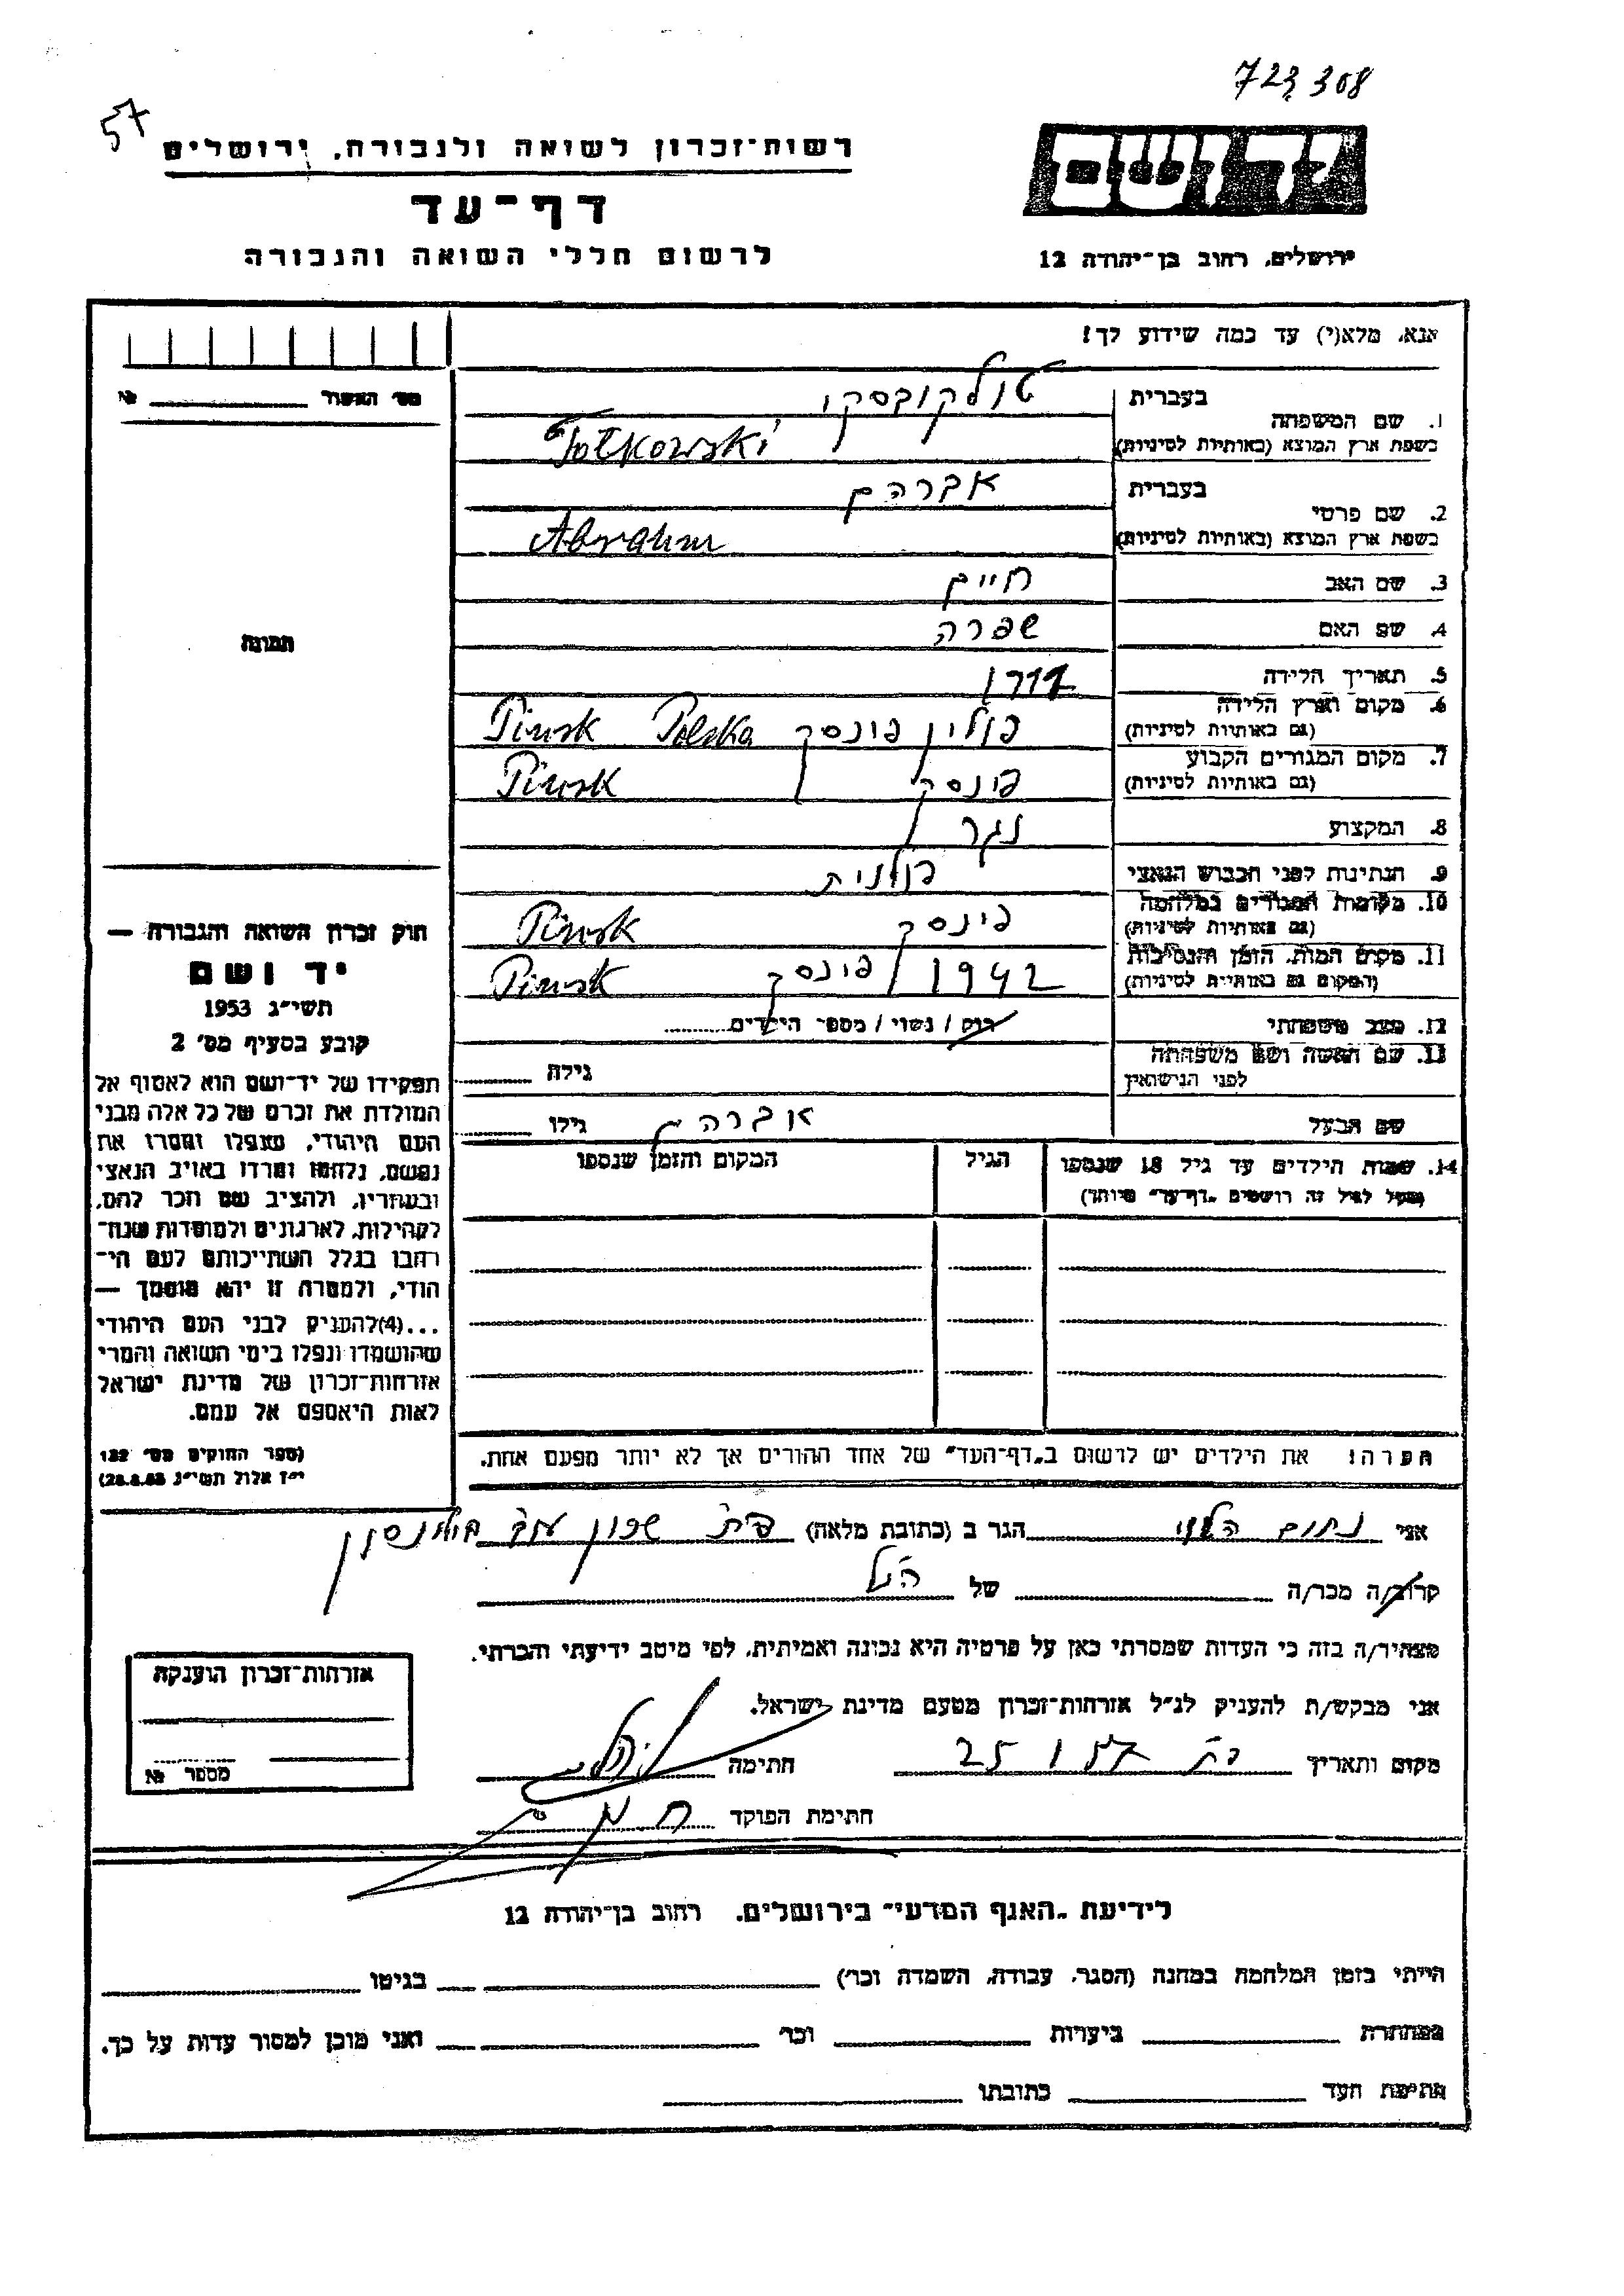 723308
57
רשות־זכרון לשואה ולגבורה, ירושלים
דף־עד
לרשום חללי השואה והגבורה
יד ושם
ירושלים, רחוב בן־יהודה 12
אנא, מלא(י) עד כמה שידוע לך!
מס׳ האשור №
תמונה
1. שם המשפחה בעברית טולקובסקי
בשפת ארץ המוצא (באותיות לטיניות) Tołkowski
2. שם פרטי בעברית אברהם
בשפת ארץ המוצא (באותיות לטיניות) Abraham
3. שם האב חיים
4. שם האם שפרה
5. תאריך הלידה
6. מקום וארץ הלידה (גם באותיות לטיניות) פולין פינסק Polska Pinsk
7. מקום המגורים הקבוע (גם באותיות לטיניות) פינסק Pinsk
8. המקצוע נגר
9. הנתינות לפני הכבוש הנאצי פולנית
10. מקומות המגורים במלחמה (גם באותיות לטיניות) פינסק Pinsk
11. מקום המות, הזמן והנסיבות (המקום גם באותיות לטיניות) 1942 פינסק Pinsk
12. מצב משפחתי רוק / נשוי / מספר הילדים
13. שם האשה ושם משפחתה לפני הנישואין גילה
שם הבעל אברהם גילו
14. שמות הילדים עד גיל 18 שנספו הגיל המקום והזמן שנספו
(מעל לגיל זה רושמים „דף־עד״ מיוחד)
חוק זכרון השואה והגבורה —
יד ושם
תשי״ג 1953
קובע בסעיף מס׳ 2
תפקידו של יד־ושם הוא לאסוף אל
המולדת את זכרם של כל אלה מבני
העם היהודי, שנפלו ומסרו את
נפשם, נלחמו ומרדו באויב הנאצי
ובעוזריו, ולהציב שם וזכר להם,
לקהילות, לארגונים ולמוסדות שנח־
רבו בגלל השתייכותם לעם הי־
הודי, ולמטרה זו יהא מוסמך —
...(4)להעניק לבני העם היהודי
שהושמדו ונפלו בימי השואה והמרי
אזרחות־זכרון של מדינת ישראל
לאות היאספם אל עמם.
(ספר החוקים מס׳ 132
י״ז אלול תשי״ג 28.8.53)
הערה: את הילדים יש לרשום ב„דף־העד״ של אחד ההורים אך לא יותר מפעם אחת.
אני נחום הגר ב (כתובת מלאה)
קרוב/ה מכר/ה של הנ״ל
מצהיר/ה בזה כי העדות שמסרתי כאן על פרטיה היא נכונה ואמיתית, לפי מיטב ידיעתי והכרתי.
אני מבקש/ת להעניק לנ״ל אזרחות־זכרון מטעם מדינת ישראל.
מקום ותאריך 25 1 57 חתימה
חתימת הפוקד
אזרחות־זכרון הוענקה
מספר №
לידיעת „האגף המדעי״ בירושלים, רחוב בן־יהודה 12
הייתי בזמן המלחמה במחנה (הסגר, עבודה, השמדה וכו׳) בגיטו
במחתרת ביערות וכו׳ ואני מוכן למסור עדות על כך.
חתימת העד כתובתו